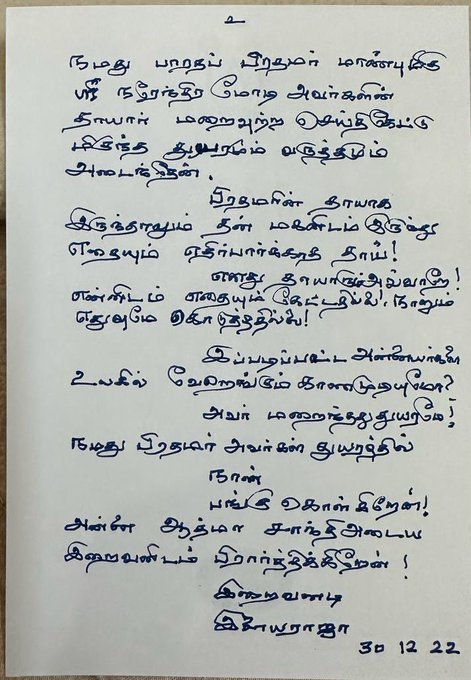 உ
நமது பாரதப் பிரதமர் மாண்புமிகு
ஸ்ரீ நரேந்திர மோடி அவர்களின்
தாயார் மறைவுற்ற செய்திகேட்டு
மிகுந்த துயரமும் வருத்தமும்
அடைந்தேன்.
பிரதமரின் தாயாக
இருந்தாலும் தன் மகனிடம் இருந்து
எதையும் எதிர்பார்க்காத தாய்!
எனது தாயாரும் அவ்வாறே!
என்னிடம் எதையும் கேட்டதில்லை, நானும்
எதுவுமே கொடுத்ததில்லை!
இப்படிப்பட்ட அன்னையர்களை
உலகில் வேறெங்கும் காணமுடியுமோ?
அவர் மறைந்தது துயரமே!
நமது பிரதமர் அவர்கள் துயரத்தில்
நான்
பங்கு கொள்கிறேன்!
அன்னை ஆத்மா சாந்தி அடைய
இறைவனிடம் பிரார்த்திக்கிறேன்!
இறைவனடி
இளையராஜா
30 12 22